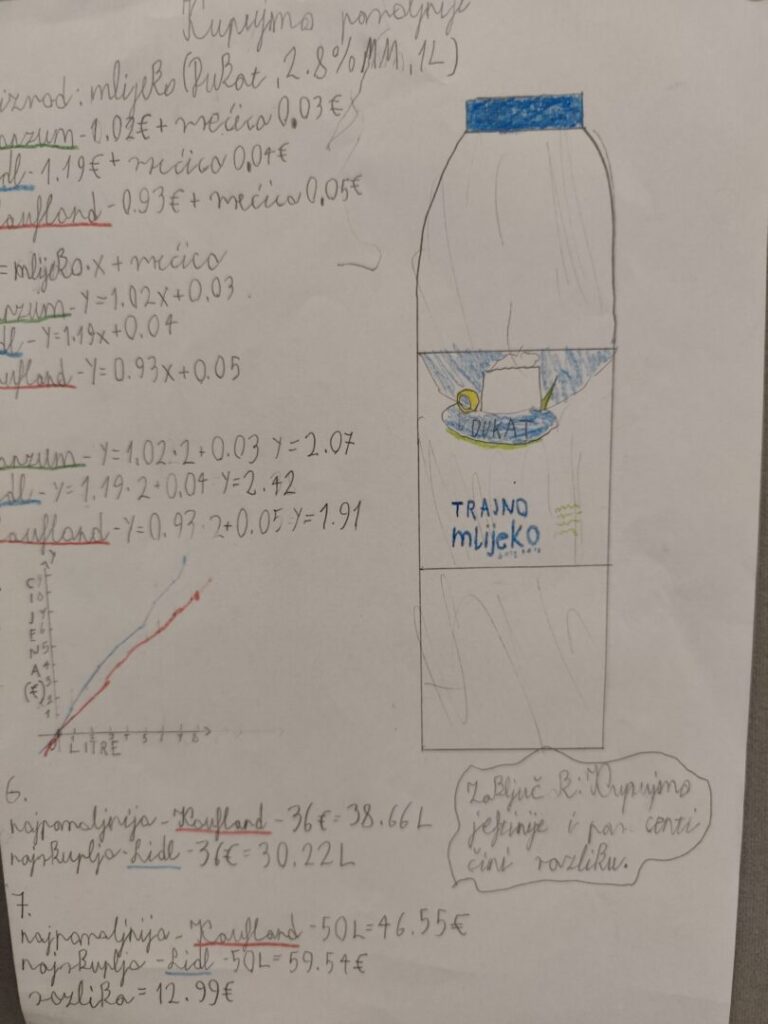 Kupujmo povoljnije
izvod: mlijeko (Dukat, 2.8% MM, 1L)
onzum - 1.02€ + vrećica 0.03€
dl - 1.19€ + vrećica 0.04€
aufland - 0.93€ + vrećica 0.05€
= mlijeko·x + vrećica
nzum - Y=1.02x+0.03
dl - Y=1.19x+0.04
aufland - Y=0.93x+0.05
onzum - Y=1.02·2+0.03 Y=2.07
dl - Y=1.19·2+0.04 Y=2.42
aufland - Y=0.93·2+0.05 Y=1.91
Y
CIJENA (€)
1 2 3 4 5 6
LITRE
DUKAT
TRAJNO
mlijeko
6.
najpovoljnija - Kaufland - 36€ = 38.66L
najskuplja - Lidl - 36€ = 30.22L
Zaključak: Kupujmo
jeftinije i par centi
čini razliku.
7.
najpovoljnija - Kaufland - 50L = 46.55€
najskuplja - Lidl - 50L = 59.54€
razlika = 12.99€